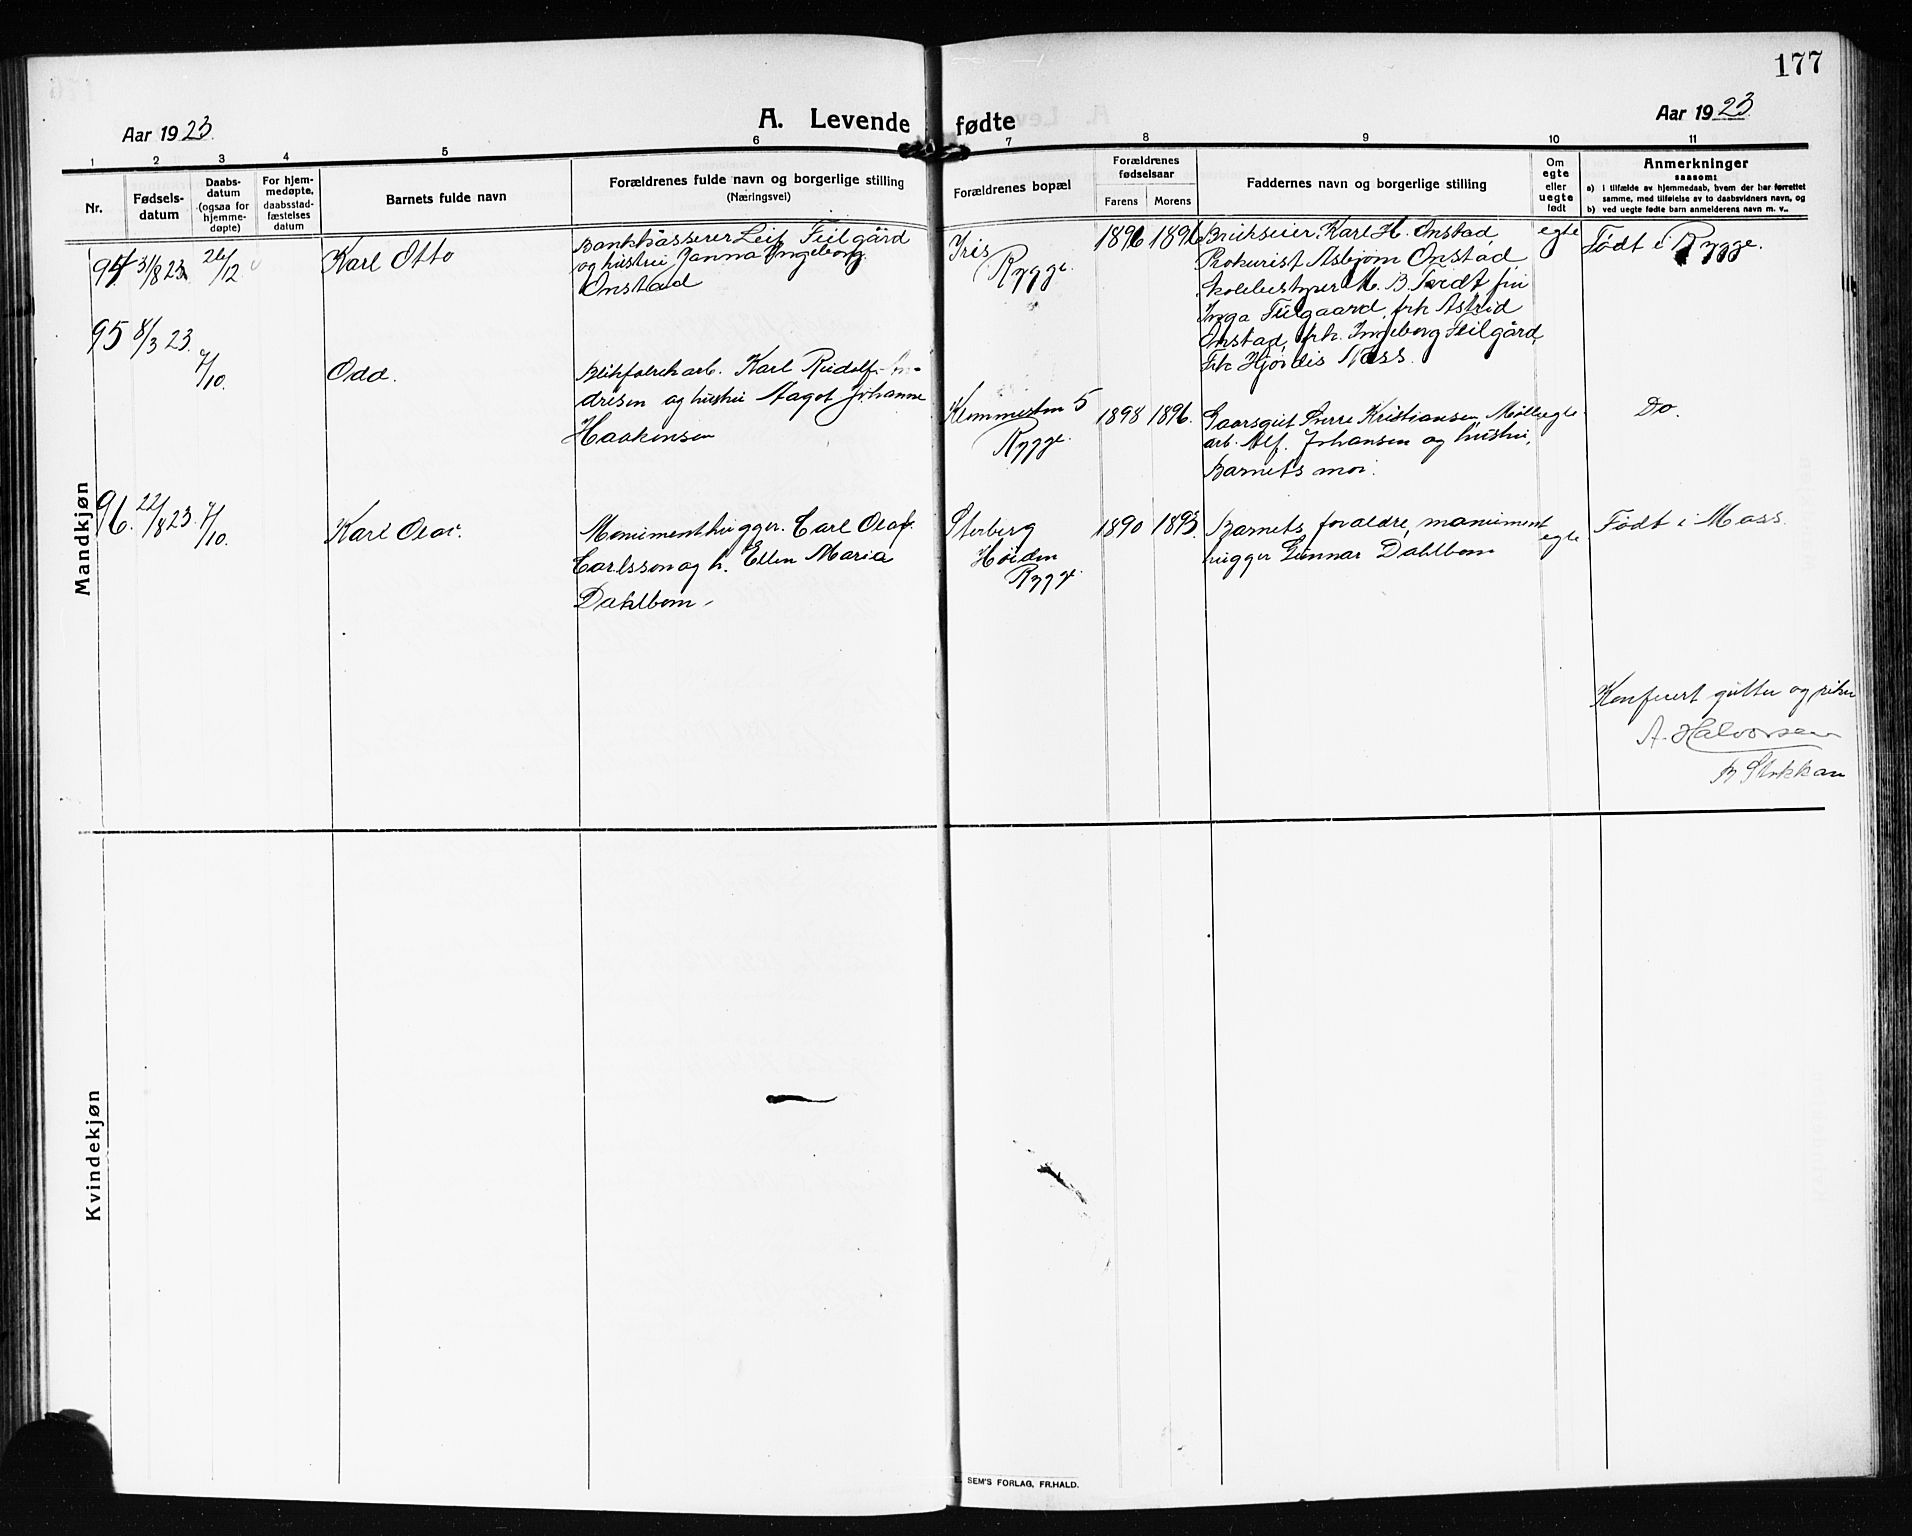 177
Aar 1923.
A. Levende fødte
Aar 1923
1 2 3 4 5 6 7 8 9 10 11
Nr.
Fødsels-
datum
Daabs-
datum
(ogsaa for
hjemme-
døpte)
For hjem-
medøpte,
daabsstad-
fæstelses
datum
Barnets fulde navn
Forældrenes fulde navn og borgerlige stilling
(Næringsvei)
Forældrenes bopæl
Forældrenes
fødselsaar
Farens Morens
Faddernes navn og borgerlige stilling
Om
egte
eller
uegte
født
Anmerkninger
saasom:
a) i tilfælde av hjemmedaab, hvem der har forrettet
samme, med tilføielse av to daabsvidners navn, og
b) ved uegte fødte barn anmelderens navn m. v..
Mandkjøn
94 31/8 23 26/12
Karl Otto
Bankkasserer Leif Feilgård
og hustru Janna Ingeborg
Onstad
Iris
Rygge.
1896 1896
Brukseier Karl H. Onstad,
Prokurist Asbjørn Onstad,
Skolebestyrer M. B. Tvedt, fru
Inga Feilgaard, frk Astrid
Onstad, frk. Ingeborg Feilgård,
Frk Hjørdis Næss.
egte
Født i Rygge.
95 8/3 23. 7/10.
Odd.
Blikfabrikarb. Karl Rudolf An-
dresen og hustru Aagot Johanne
Haakensen
5
Rygge.
1898 1896.
Gaarsgut Sverre Kristiansen, Mølle
arb. Alf. Johansen og hustru,
Barnets mor.
egte.
Do.
96. 22/8 23. 7/10.
Karl Olof.
Monumenthugger. Carl Olof.
Carlsson og h. Ellen Maria
Dahlbom.
Høiden
Rygge
1890 1893.
Barnets forældre, monument
hugger Gunnar Dahlbom
egte.
Født i Moss.
Konferert gutter og piker
A. Halvorsen
B Stokkan
Kvindekjøn
E. SEM'S FORLAG, FR.HALD.